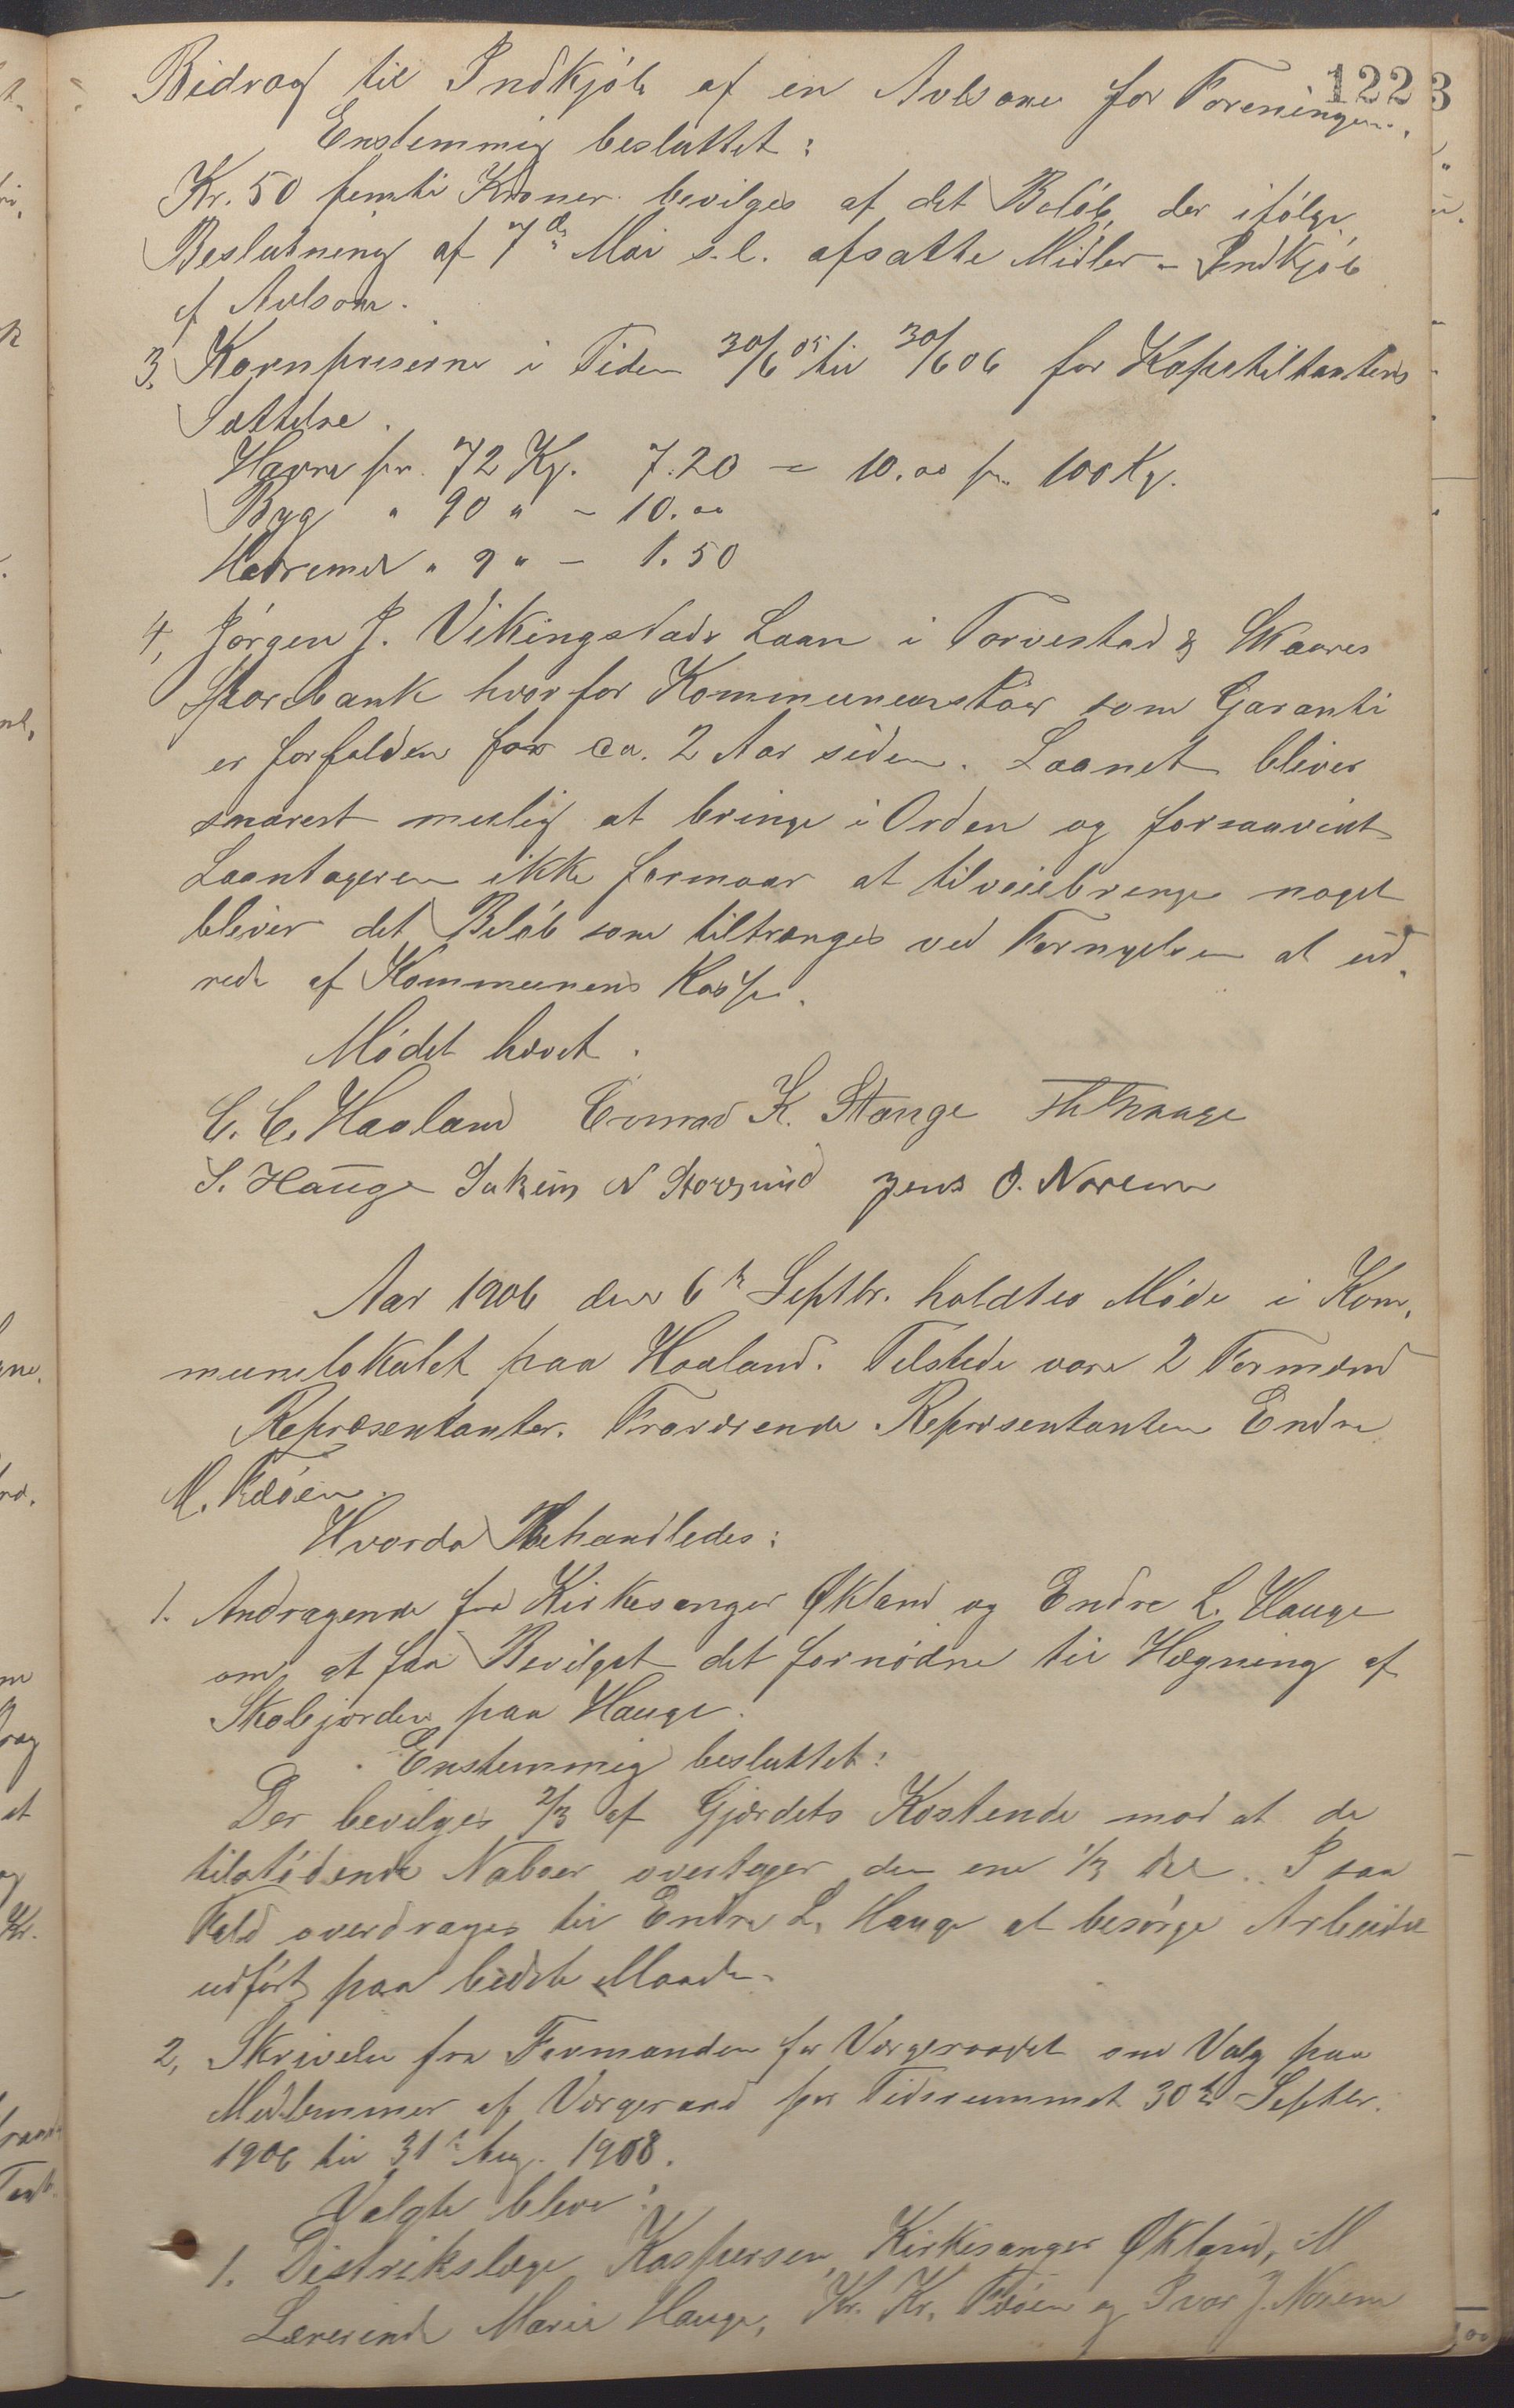 122
Bidrag til Indkjöb af en Avlsone for Foreningen.
Enstemmig besluttet:
Kr. 50 femti Kroner bevilges af det Belöb, der ifölge
Beslutning af 7de Mai s.l. afsatte Midler – Indkjöb
af Avlsone.
3, Kornpriserne i Tiden 30/6 05 til 30/6 06 for Kapiteltakstens
Sættelse.
Havre pr. 72 Kg. 7.20 = 10.00 pr. 100 Kg.
Byg " 90 " – 10.00
Havremel " 9 " – 1.50
4, Jörgen J. Vikingstads Laan i Torvestad & Skaares
Sparebank hvorfor Kommunen staar som Garanti
er forfalden for ca. 2 Aar siden. Laanet bliver
snarest mulig at bringe i Orden og forsaavidt
Laantageren ikke formaar at tilveiebringe noget
bliver det Belöb som tiltrænges ved Fornyelsen at ud-
rede af Kommunens Kasse.
Mödet hævet.
C. C. Haaland Conrad K. Stange Th Thrauge
S. Hauge Jakim N Storesund Jens O. Norem
Aar 1906 den 6te Septbr. holdtes Möde i Kom-
munelokalet paa Haaland. Tilstede vare 2 Formænd
Repræsentanter. Fraværende Repræsentanten Endre
M. Fæöen.
Hvorda Behandledes:
1. Andragende fra Kirkesanger Økland og Endre L. Hauge
om at faa Bevilget det fornödne til Hægning af
Skolejorden paa Hauge.
Enstemmig besluttet:
Der bevilges 2/3 af Gjærdets Kostende mod at de
tilstödende Naboer overtager den ene 1/3 Del. I saa
Fald overdrages til Endre L. Hauge at besörge Arbeidet
udfört paa bedste Maade.
2, Skrivelse fra Formanden for Værgeraadet om Valg paa
Medlemmer af Værgeraad for Tidsrummet 30te Septbr.
1906 til 31te Aug. 1908.
Valgte bleve:
1. Distrikslæge Kaspersen, Kirkesanger Økland, M
Lærerinde Marie Hauge, Kr. Kr. Fæöen og Ivar J. Norem